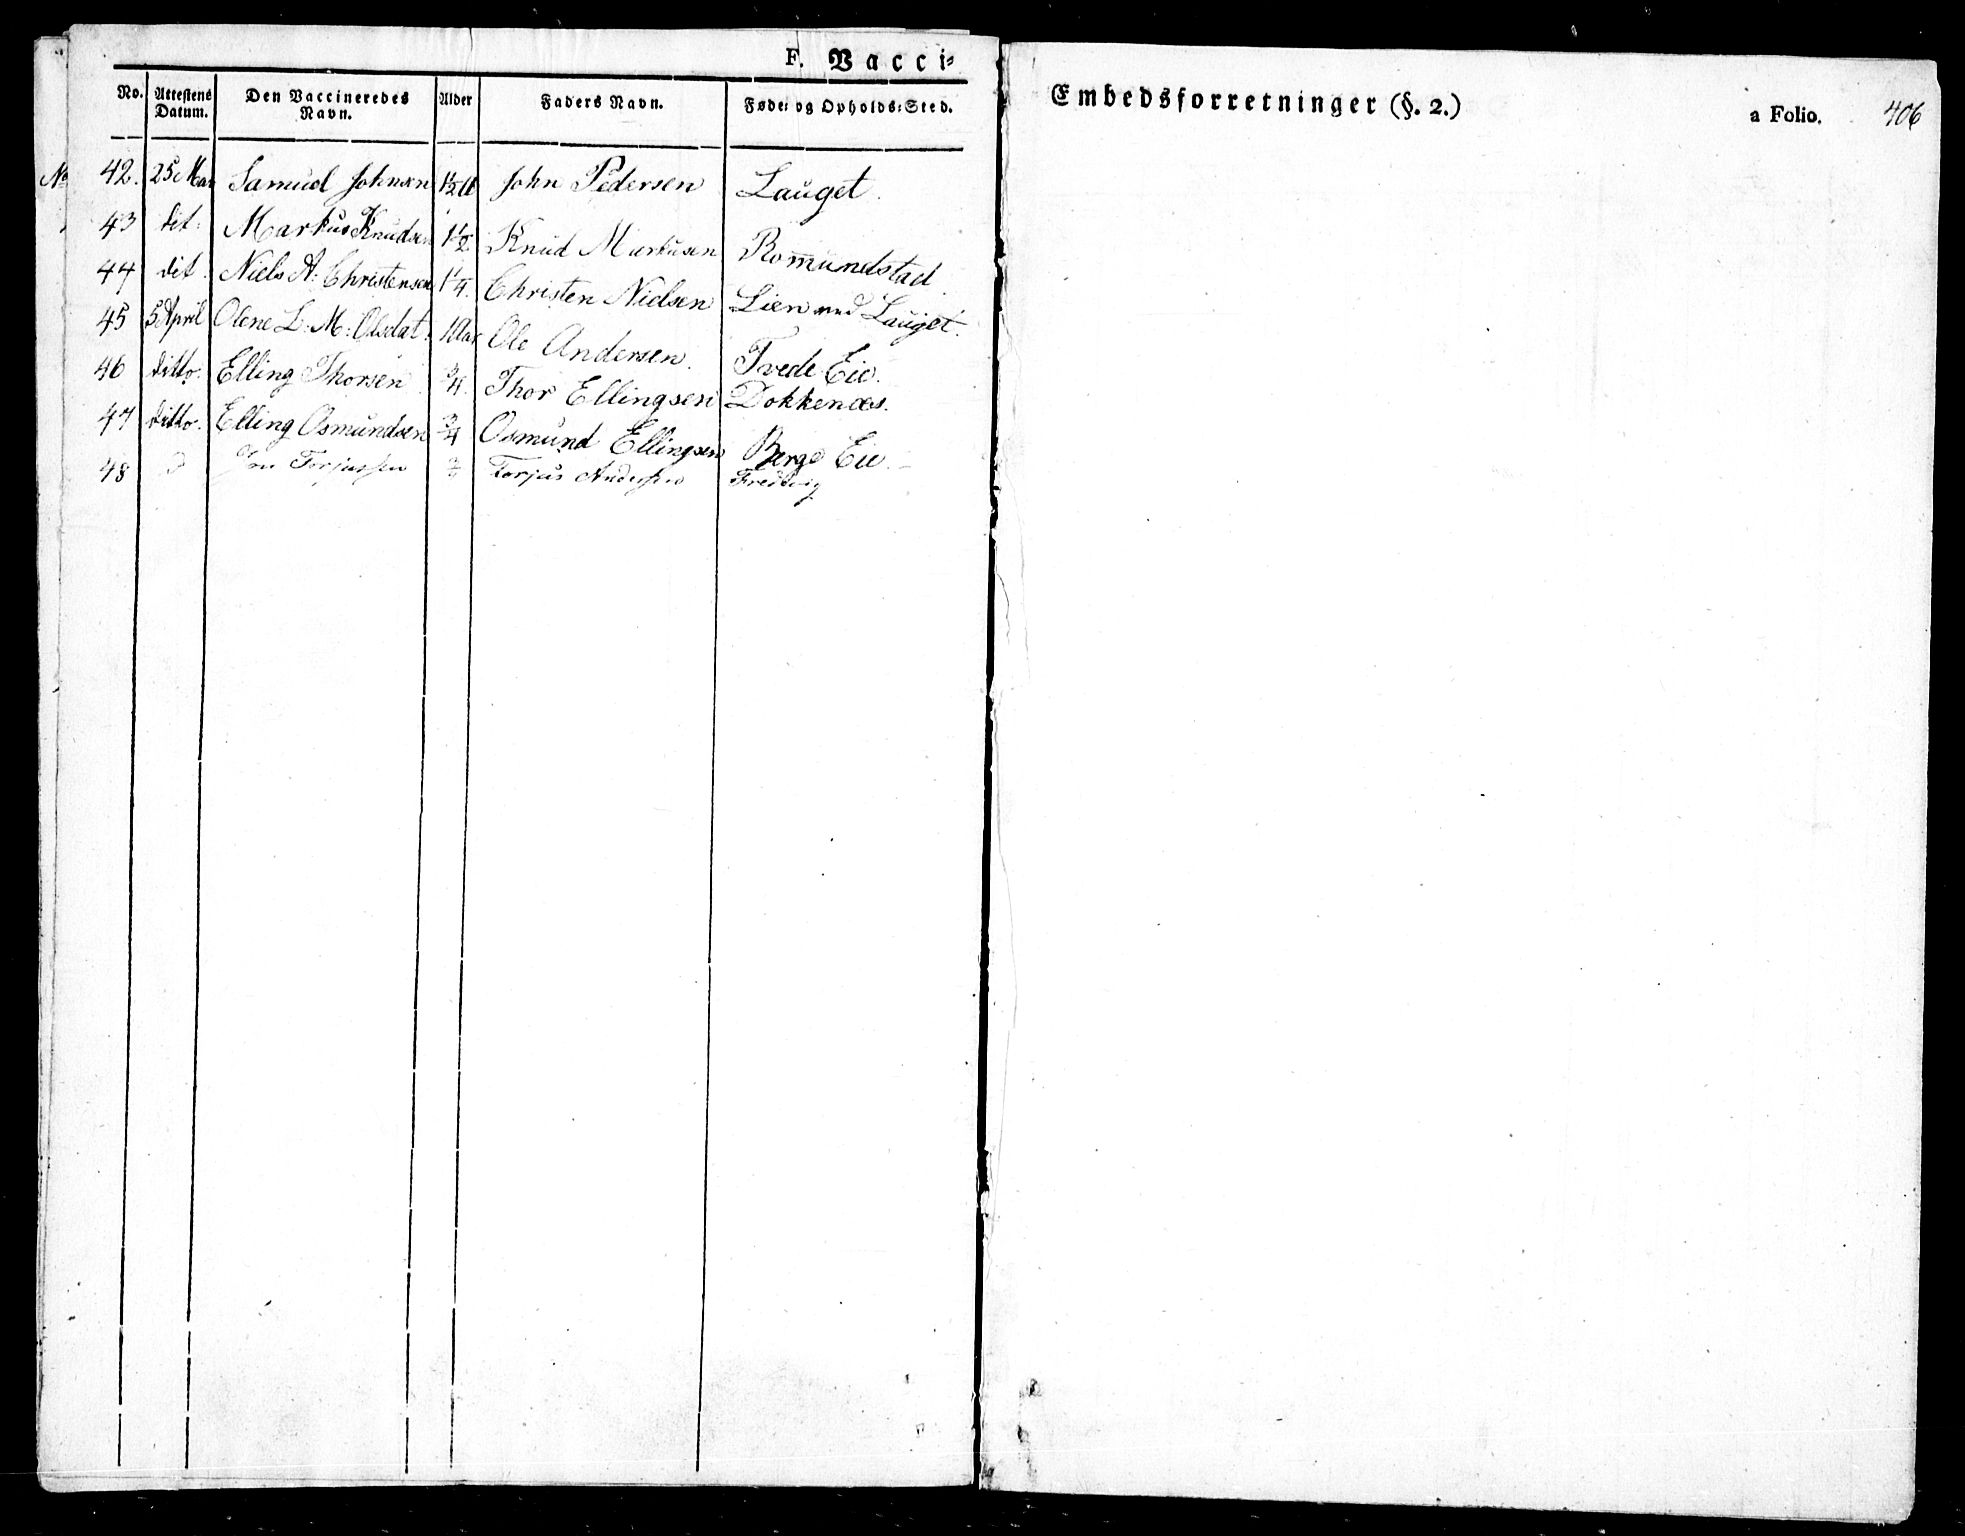 F. Vacci-
No. | Attestens Datum. | Den Vaccineredes Navn. | Alder | Faders Navn. | Føde- og Opholds-Sted.
42. | 25 Mar | Samuel Johnsen | 1½ | John Pedersen | Lauget.
43 | dit. | Markus Knudsen | 1½ | Knud Markusen | Romundstad
44 | dit. | Niels A: Christensen | 1¼. | Christen Nielsen | Lien ved Lauget.
45 | 5 April | Olene L: M: Olsdat. | 1 Aar | Ole Andersen. | Tvede Eie.
46 | ditto. | Elling Thorsen | ¾. | Thor Ellingsen | Dokkenæs.
47 | ditto. | Elling Osmundsen | ¾ | Osmund Ellingsen | Berge Eie.
48 | Torjussen | Torjus Anderssen
Embedsforretninger (§. 2.)
a Folio. 406
No